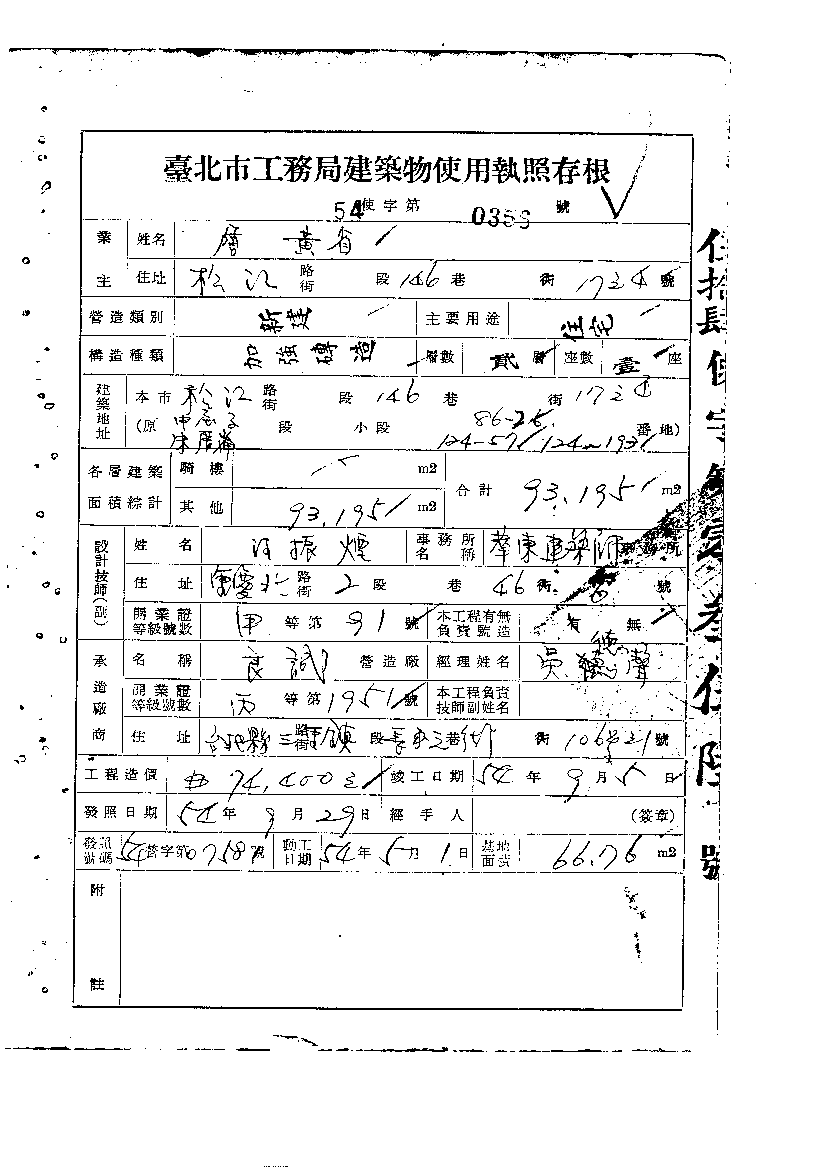 臺北市工務局建築物使用執照存根
54使字第 號
業主 姓名 黃省
住址 松江 路街 段 146 巷 街 號
營造類別 新建 主要用途 住宅
構造種類 加強磚造 層數 貳層 座數 壹座
建築地址 本市 松江 路街 段 146 巷 街
(原 段 小段 124-57 番地)
各層建築面積綜計 騎樓 m2 合計 93.195 m2
其他 93.195 m2
設計技師(副) 姓名 振煙 事務所名稱 華東建築師
住址 路街 2 段 巷 46 街 號
開業證等級號數 甲 等第 91 號 本工程有無負責營造 有 無
承造廠商 名稱 良誠 營造廠 經理姓名 吳 聲
開業證等級號數 丙 等第 1951 號 本工程負責技師副姓名
住址 台北縣三 鎮 路街 段 巷 街 號
工程造價 74,400 竣工日期 54年9月5日
發照日期 54年9月29日 經手人 (簽章)
發照號碼 54營字第0758 號 動工日期 54年5月1日 基地面積 66.76 m2
附註
伍拾肆使字第 號